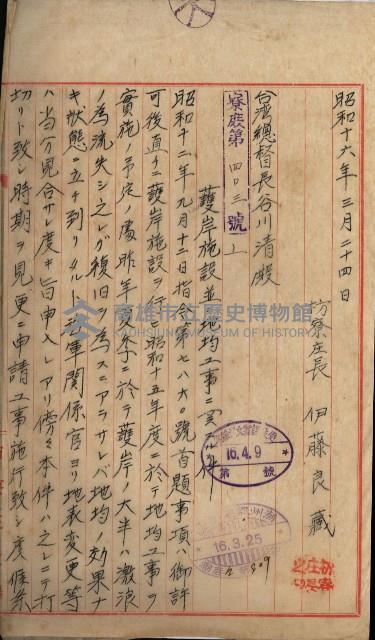 昭和十六年三月二十四日
枋寮庄長 伊藤良藏
台湾總督長谷川清殿
寮庶第四〇三號ノ一
護岸施設並ニ地均工事ニ関スル件
昭和十二年九月十二日指令第七八六〇號首題事項ハ御許
可後直チニ護岸施設ヲ行ヒ昭和十五年度ニ於テ地均工事ヲ
實施ノ予定ノ處昨年ニ於テ護岸ノ大半ハ激浪
ノ為流失シ之レガ復旧ヲ為スニアラサレバ地均ノ効果ナ
キ状態ニ立チ到リ軍関係官ヨリ地表変更等
ハ当分見合サレ度キ旨申入レアリ傍々本件ハ之レニテ打
切リト致シ時期ヲ見更ニ申請工事施行致シ度候条
16.4.9
第 號
16.3.25
高雄市立歷史博物館
KAOHSIUNG MUSEUM OF HISTORY